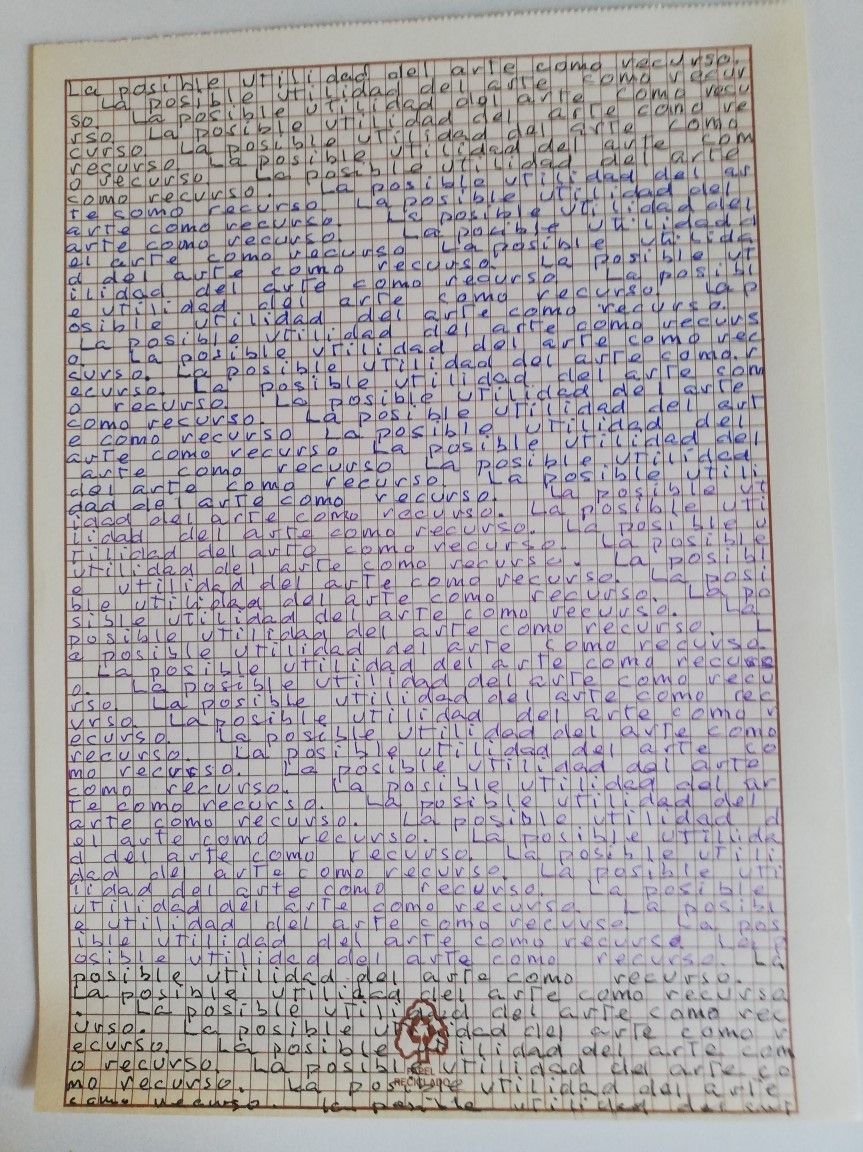 La posible utilidad del arte como recurso.
La posible utilidad del arte como recur
so. La posible utilidad del arte como recu
rso. La posible utilidad del arte como re
curso. La posible utilidad del arte como
recurso. La posible utilidad del arte com
o recurso. La posible utilidad del arte
como recurso. La posible utilidad del ar
te como recurso. La posible utilidad del
arte como recurso. La posible utilidad del
arte como recurso. La posible utilidad d
el arte como recurso. La posible utilida
d del arte como recurso. La posible ut
ilidad del arte como recurso. La posibl
e utilidad del arte como recurso. La p
osible utilidad del arte como recurso.
La posible utilidad del arte como recurs
o. La posible utilidad del arte como rec
surso. La posible utilidad del arte como r
ecurso. La posible utilidad del arte com
o recurso. La posible utilidad del arte
como recurso. La posible utilidad del art
e como recurso. La posible utilidad del
arte como recurso. La posible utilidad del
arte como recurso. La posible utilidad
del arte como recurso. La posible utili
dad del arte como recurso. La posible uti
idad del arte como recurso. La posible uti
lidad del arte como recurso. La posible u
tilidad del arte como recurso. La posible
utilidad del arte como recurso. La posibl
e utilidad del arte como recurso. La posi
ble utilidad del arte como recurso. La po
sible utilidad del arte como recurso. La
posible utilidad del arte como recurso. L
a posible utilidad del arte como recurso.
La posible utilidad del arte como recurs
o. La posible utilidad del arte como recu
rso. La posible utilidad del arte como rec
urso. La posible utilidad del arte como r
ecurso. La posible utilidad del arte como
recurso. La posible utilidad del arte co
mo recurso. La posible utilidad del arte
como recurso. La posible utilidad del ar
te como recurso. La posible utilidad del
arte como recurso. La posible utilidad d
el arte como recurso. La posible utilida
d del arte como recurso. La posible utili
dad del arte como recurso. La posible uti
lidad del arte como recurso. La posible
utilidad del arte como recurso. La posibl
e utilidad del arte como recurso. La pos
ible utilidad del arte como recurso. La p
osible utilidad del arte como recurso. La
posible utilidad del arte como recurso.
La posible utilidad del arte como recurso
. La posible utilidad del arte como rec
urso. La posible utilidad del arte como r
ecurso. La posible utilidad del arte com
o recurso. La posible utilidad del arte co
mo recurso. La posible utilidad del arte
como recurso. La posible utilidad del art
PAPEL
RECICLADO